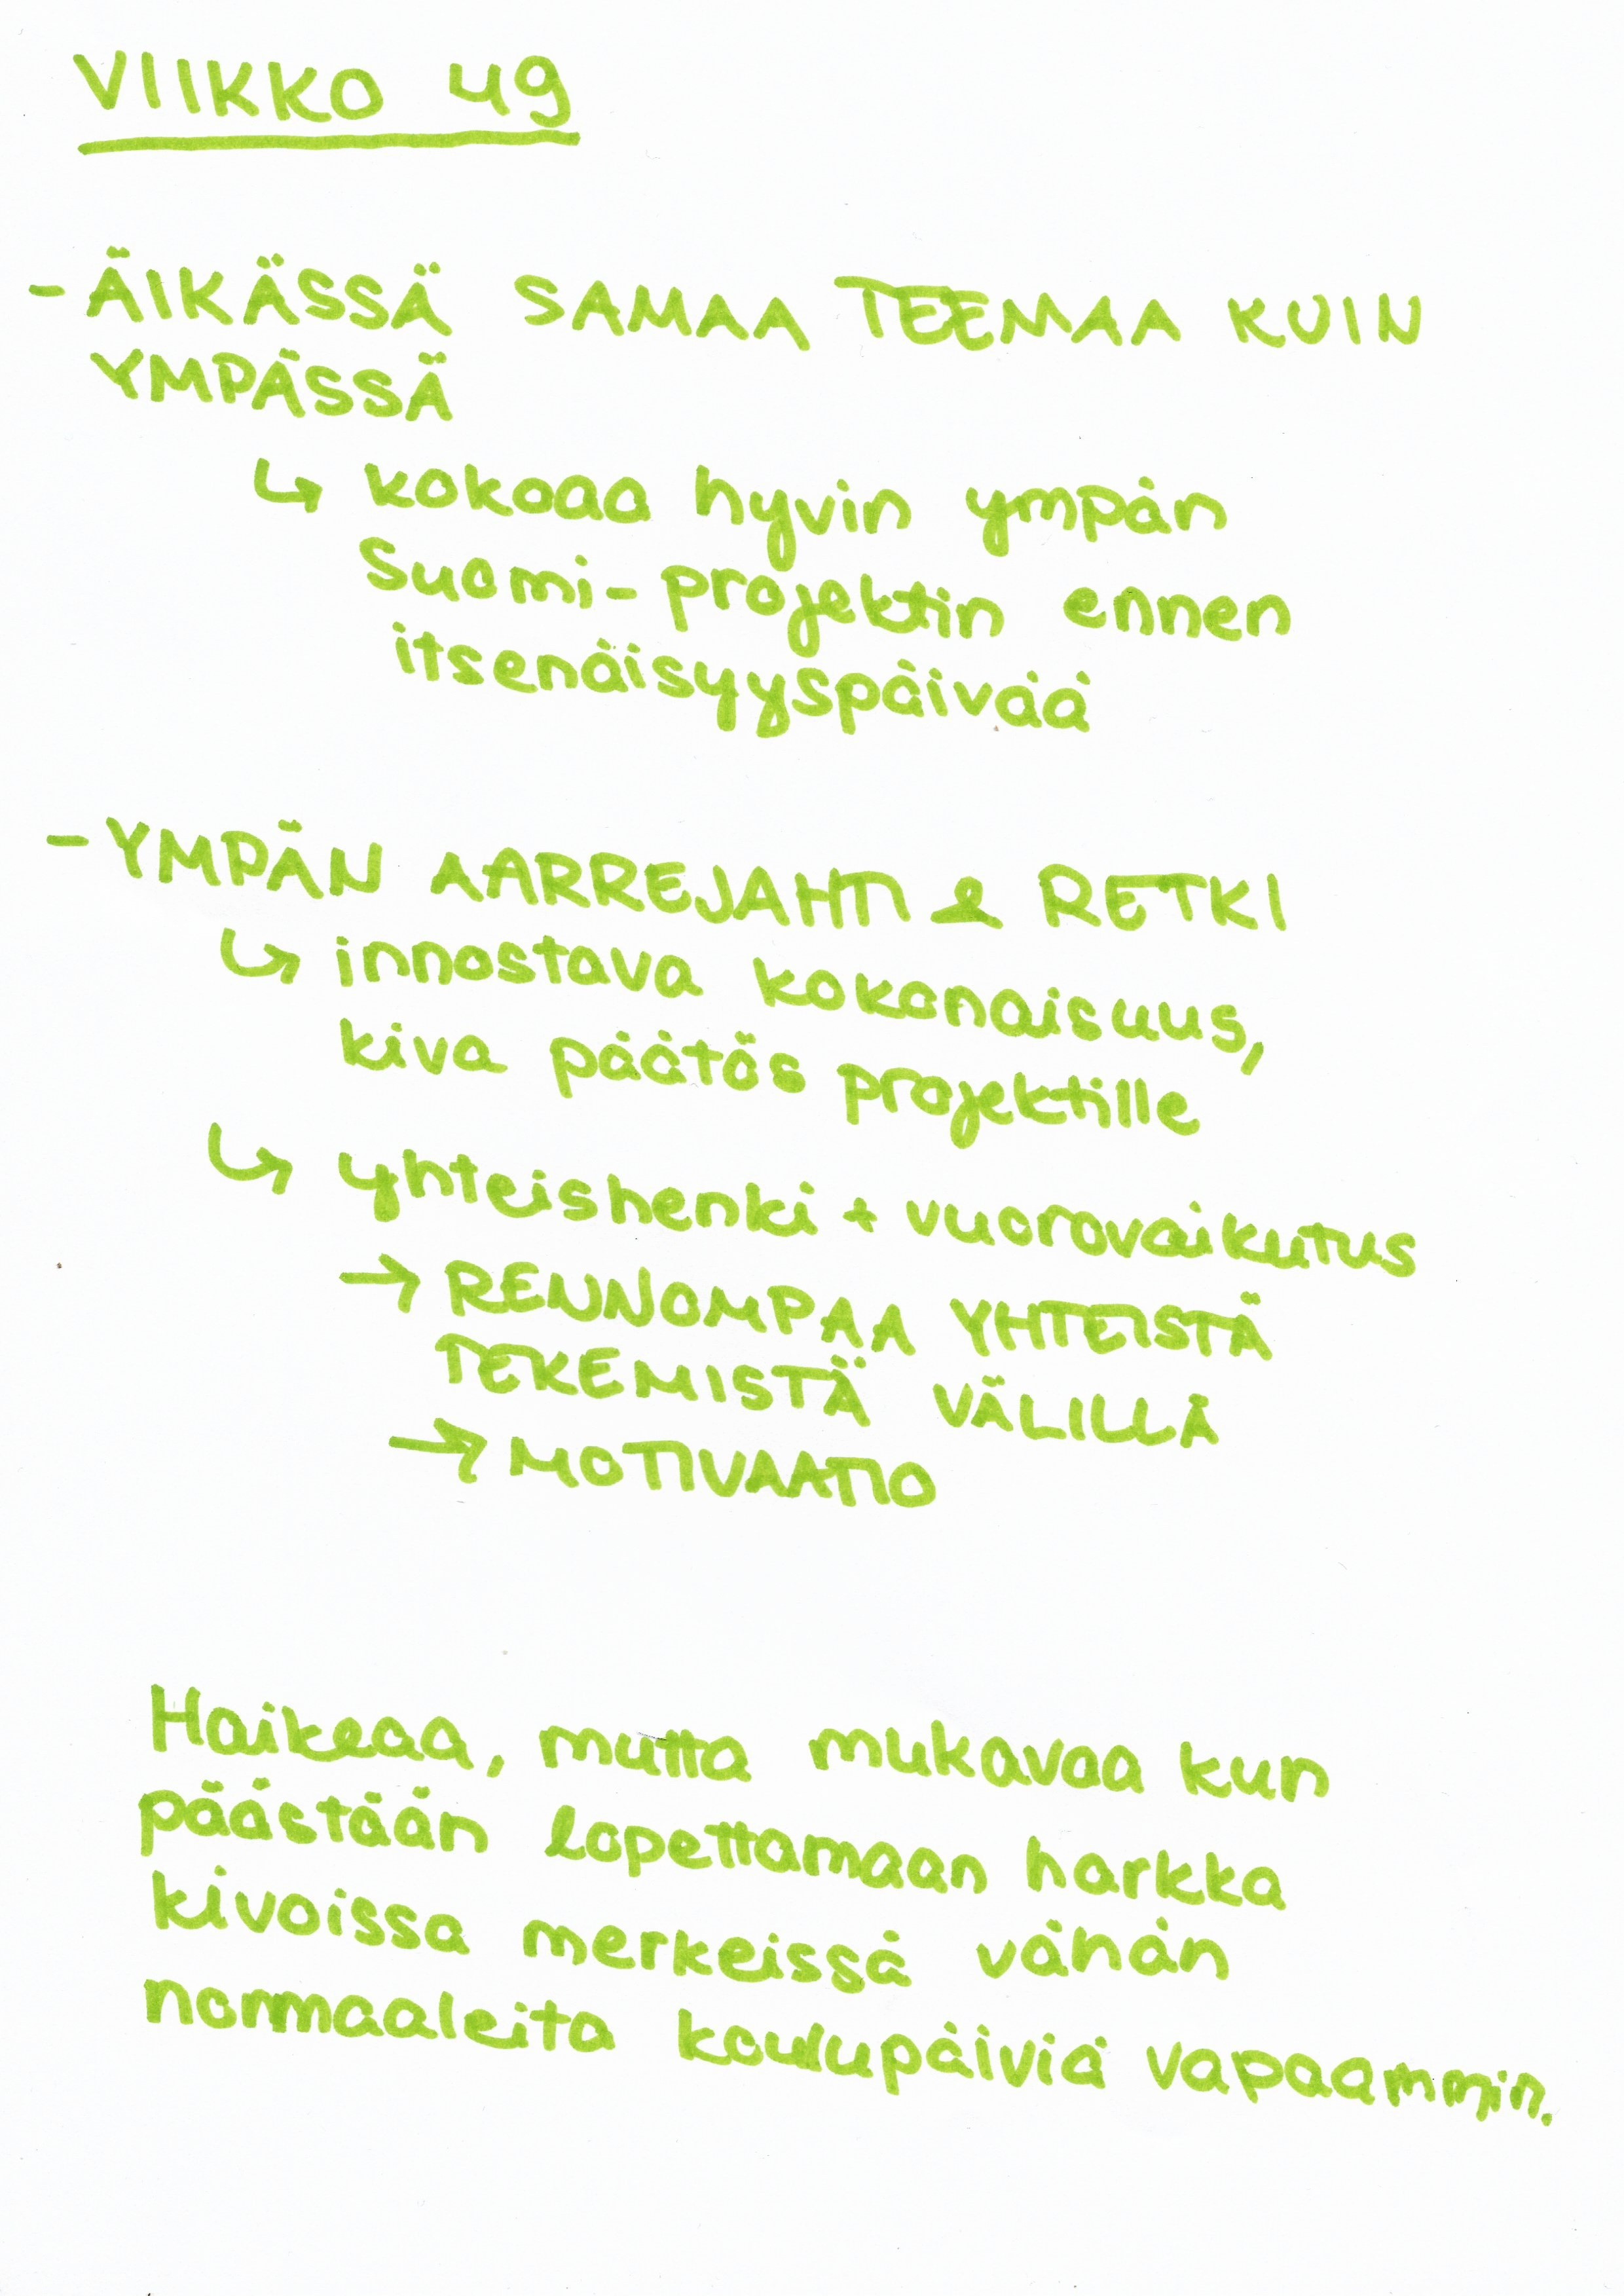 VIIKKO 49
- ÄIKÄSSÄ SAMAA TEEMAA KUIN
YMPÄSSÄ
↳ kokoaa hyvin ympän
Suomi-projektin ennen
itsenäisyyspäivää
- YMPÄN AARREJAHTI & RETKI
↳ innostava kokonaisuus,
kiva päätös projektille
↳ yhteishenki + vuorovaikutus
→ RENNOMPAA YHTEISTÄ
TEKEMISTÄ VÄLILLÄ
→ MOTIVAATIO
Haikeaa, mutta mukavaa kun
päästään lopettamaan harkka
kivoissa merkeissä vähän
normaaleita koulupäiviä vapaammin.